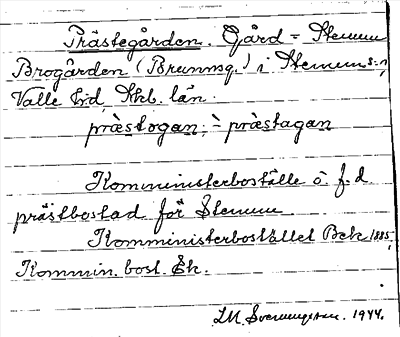 Prästegården. Gård = Stenum
Brogården (Brunnsg.) i Stenums sn,
Valle hd, Skb. län.
præstogan, ~ præstagan
Komministerboställe o. f. d.
prästbostad för Stenum
Komministerbostället Bek 1885,
Kommin. bost. Ek.
1944.